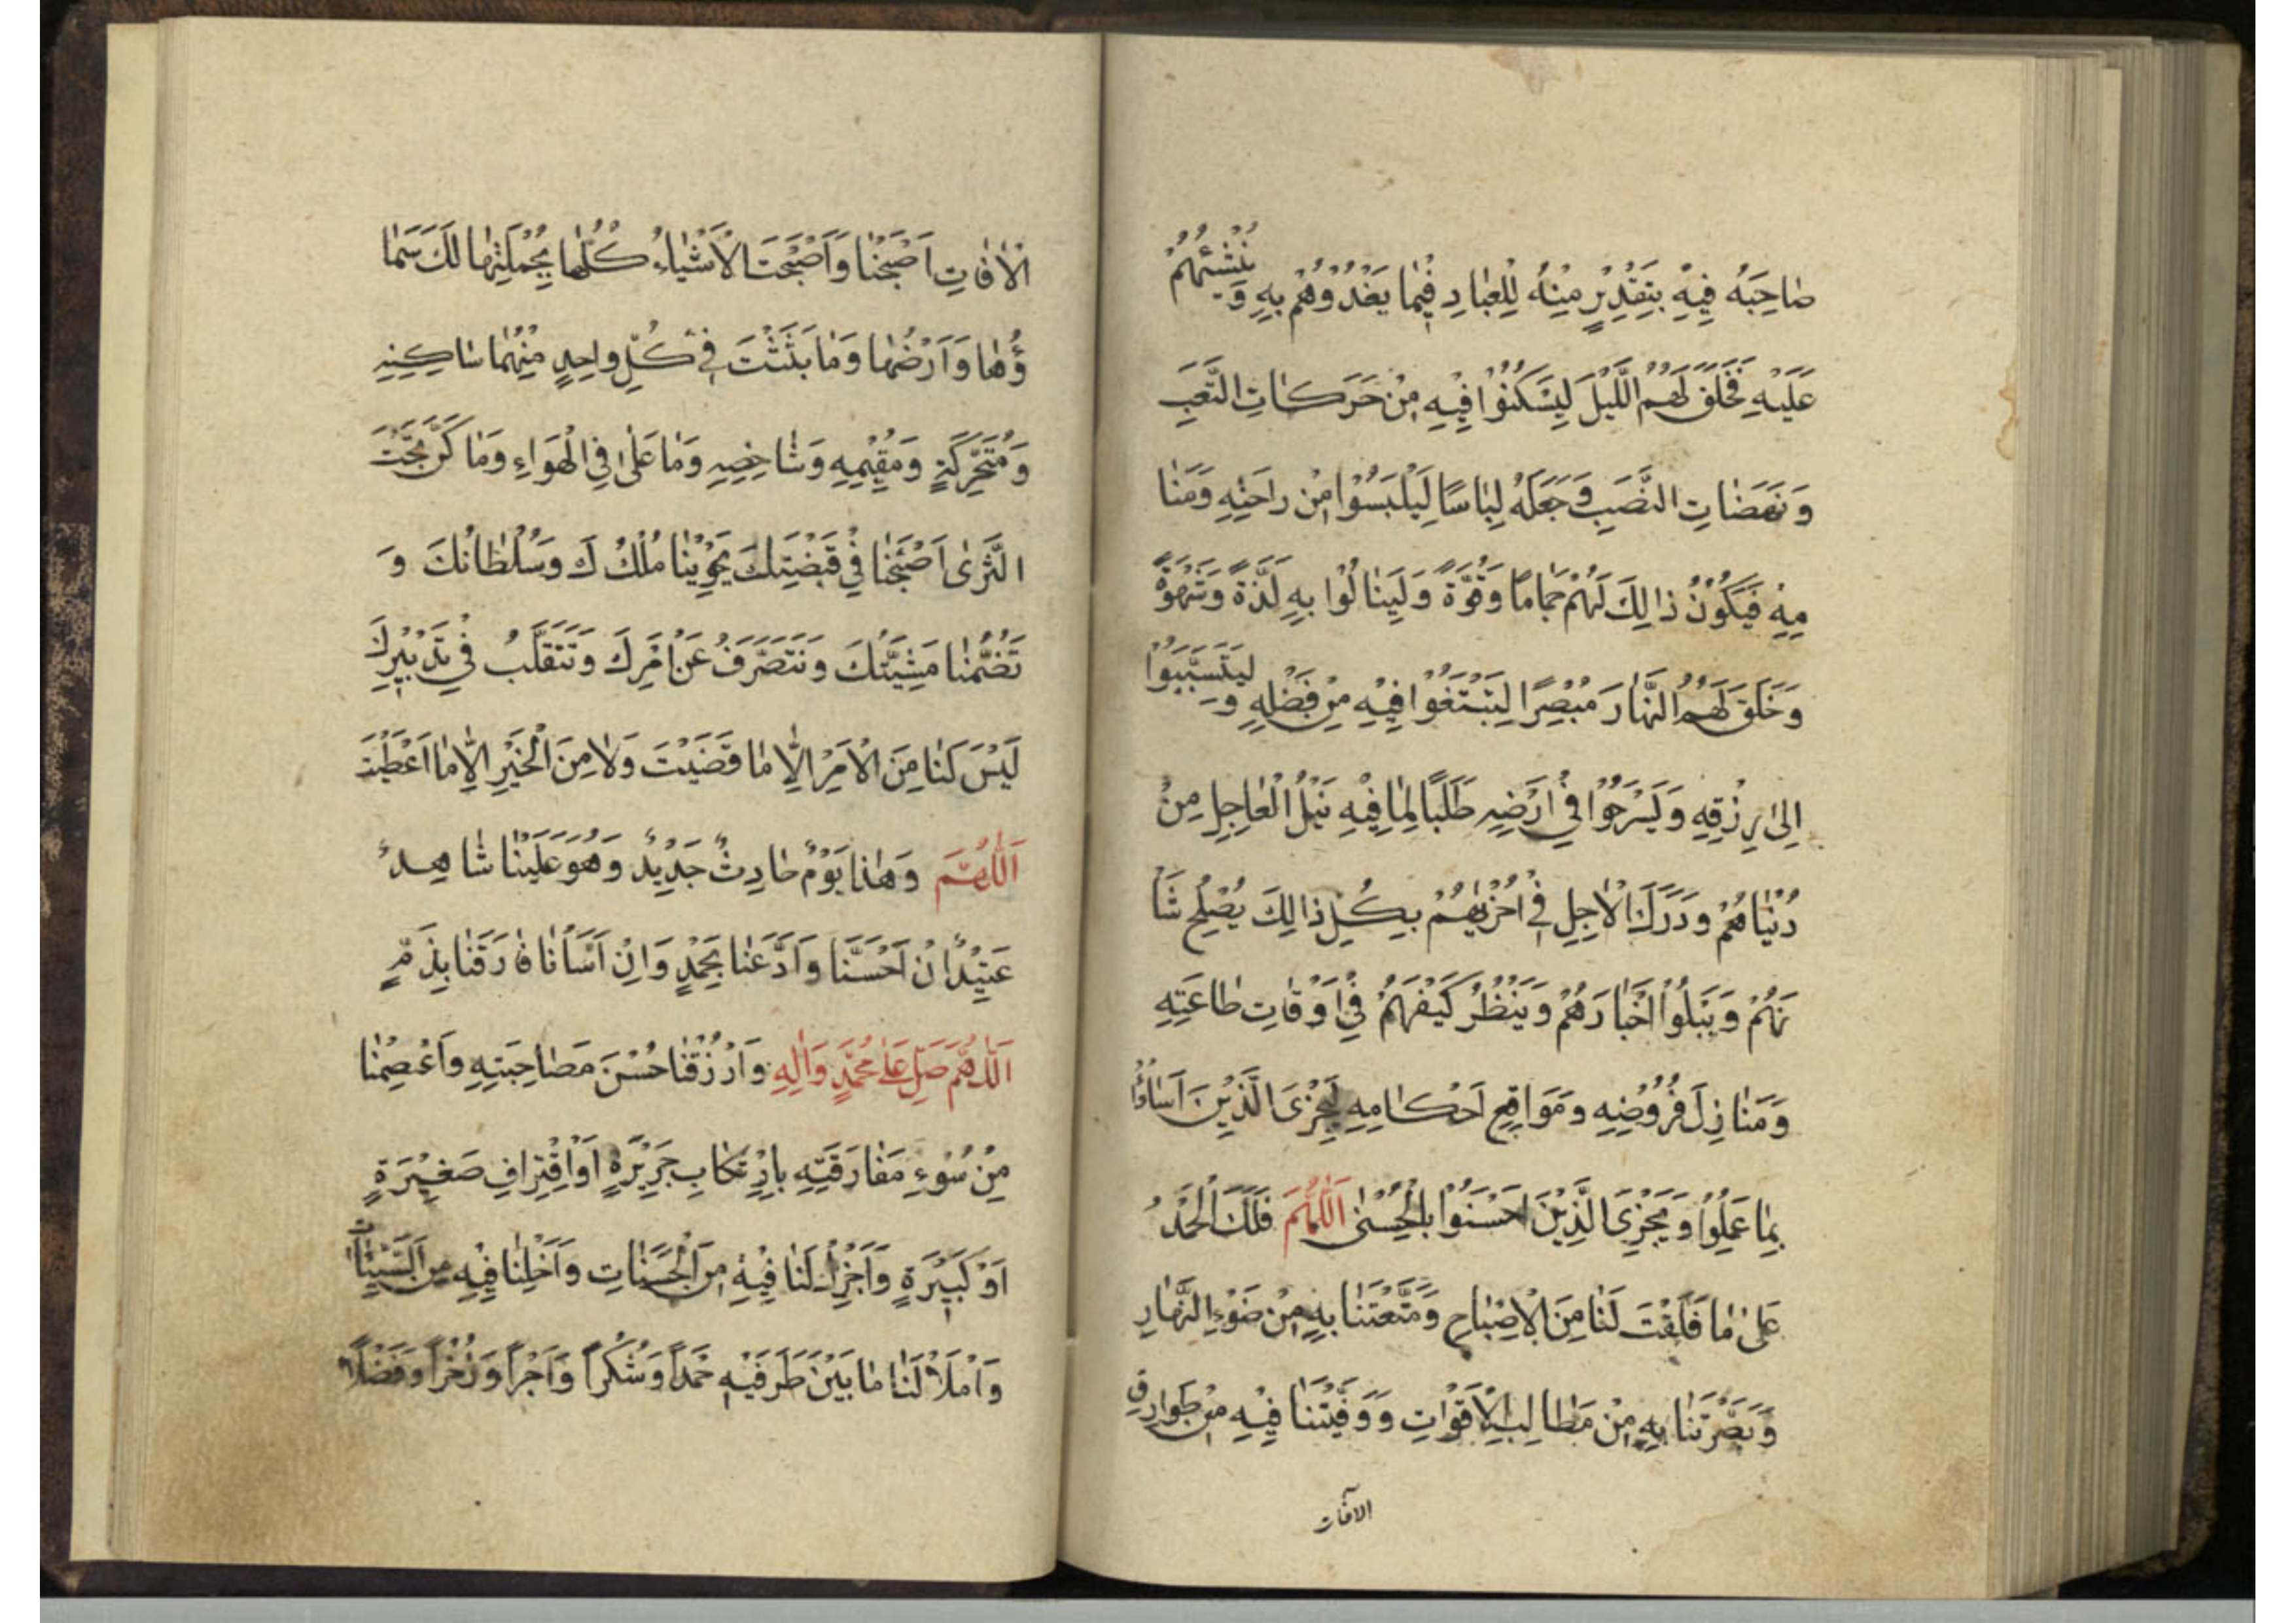 صَاحِبَهُ فِيهِ بِتَقْدِيرٍ مِنْهُ لِلْعِبَادِ فِيمَا يَغْذُوهُمْ بِهِ وَ يُنْشِئُهُمْ
عَلَيْهِ فَخَلَقَ لَهُمُ اللَّيْلَ لِيَسْكُنُوا فِيهِ مِنْ حَرَكَاتِ التَّعَبِ
وَ نَهَضَاتِ النَّصَبِ وَ جَعَلَهُ لِبَاسًا لِيَلْبَسُوا مِنْ رَاحَتِهِ وَ مَنَا
مِهِ فَيَكُونُ ذَالِكَ لَهُمْ جَمَامًا وَ قُوَّةً وَ لِيَنَالُوا بِهِ لَذَّةً وَ شَهْوَةً
وَ خَلَقَ لَهُمُ النَّهَارَ مُبْصِرًا لِيَبْتَغُوا فِيهِ مِنْ فَضْلِهِ وَ لِيَتَسَبَّبُوا
اِلَى رِزْقِهِ وَ يَسْرَحُوا فِي اَرْضِهِ طَلَبًا لِمَا فِيهِ نَيْلُ الْعَاجِلِ مِنْ
دُنْيَاهُمْ وَ دَرَكُ الْاٰجِلِ فِي اُخْرٰيهُمْ بِكُلِّ ذَالِكَ يُصْلِحُ شَا
نَهُمْ وَ يَبْلُوا اَخْبَارَهُمْ وَ يَنْظُرُ كَيْفَ هُمْ فِي اَوْقَاتِ طَاعَتِهِ
وَ مَنَازِلَ فُرُوضِهِ وَ مَوَاقِعِ اَحْكَامِهِ لِيَجْزِىَ الَّذِينَ اَسَاؤُا
بِمَا عَمِلُوا وَ يَجْزِىَ الَّذِينَ اَحْسَنُوا بِالْحُسْنٰى اَللّٰهُمَّ فَلَكَ الْحَمْدُ
عَلٰى مَا فَلَقْتَ لَنَا مِنَ الْاِصْبَاحِ وَ مَتَّعْتَنَا بِهِ مِنْ ضَوْءِ النَّهَارِ
وَ بَصَّرْتَنَا بِهِ مِنْ مَطَالِبِ الْاَقْوَاتِ وَ وَقَيْتَنَا فِيهِ مِنْ طَوَارِقِ
الآفات
الْاٰفَاتِ اَصْبَحْنَا وَ اَصْبَحَتِ الْاَشْيَاءُ كُلُّهَا بِجُمْلَتِهَا لَكَ سَمَا
ؤُهَا وَ اَرْضُهَا وَ مَا بَثَثْتَ فِي كُلِّ وَاحِدٍ مِنْهُمَا سَاكِنِهِ
وَ مُتَحَرِّكَةٍ وَ مُقِيمِهِ وَ شَاخِصِهِ وَ مَا عَلٰى فِي الْهَوَاءِ وَ مَا كَنَّ تَحْتَ
الثَّرٰى اَصْبَحْنَا فِي قَبْضَتِكَ يَحْوِينَا مُلْكُكَ وَ سُلْطَانُكَ وَ
تَضُمُّنَا مَشِيَّتُكَ وَ نَتَصَرَّفُ عَنْ اَمْرِكَ وَ نَتَقَلَّبُ فِي تَدْبِيرِكَ
لَيْسَ لَنَا مِنَ الْاَمْرِ اِلَّا مَا قَضَيْتَ وَ لَا مِنَ الْخَيْرِ اِلَّا مَا اَعْطَيْتَ
اَللّٰهُمَّ وَ هٰذَا يَوْمٌ حَادِثٌ جَدِيدٌ وَ هُوَ عَلَيْنَا شَاهِدٌ
عَتِيدٌ اِنْ اَحْسَنَّا وَ اَدَّعَنَا بِحَمْدٍ وَ اِنْ اَسَأْنَا فَارَقَنَا بِذَمٍّ
اَللّٰهُمَّ صَلِّ عَلٰى مُحَمَّدٍ وَ اٰلِهِ وَ ارْزُقْنَا حُسْنَ مَصَاحِبَتِهِ وَ اعْصِمْنَا
مِنْ سُوْءِ مَفَارَقَتِهِ بِارْتِكَابِ جَرِيرَةٍ اَوِ اقْتِرَافِ صَغِيرَةٍ
اَوْ كَبِيرَةٍ وَ اَجْزِلْ لَنَا فِيهِ مِنَ الْحَسَنَاتِ وَ اَخْلِنَا فِيهِ مِنَ السَّيِّئَاتِ
وَ امْلَأْ لَنَا مَا بَيْنَ طَرَفَيْهِ حَمْدًا وَ شُكْرًا وَ اَجْرًا وَ ذُخْرًا وَ فَضْلًا